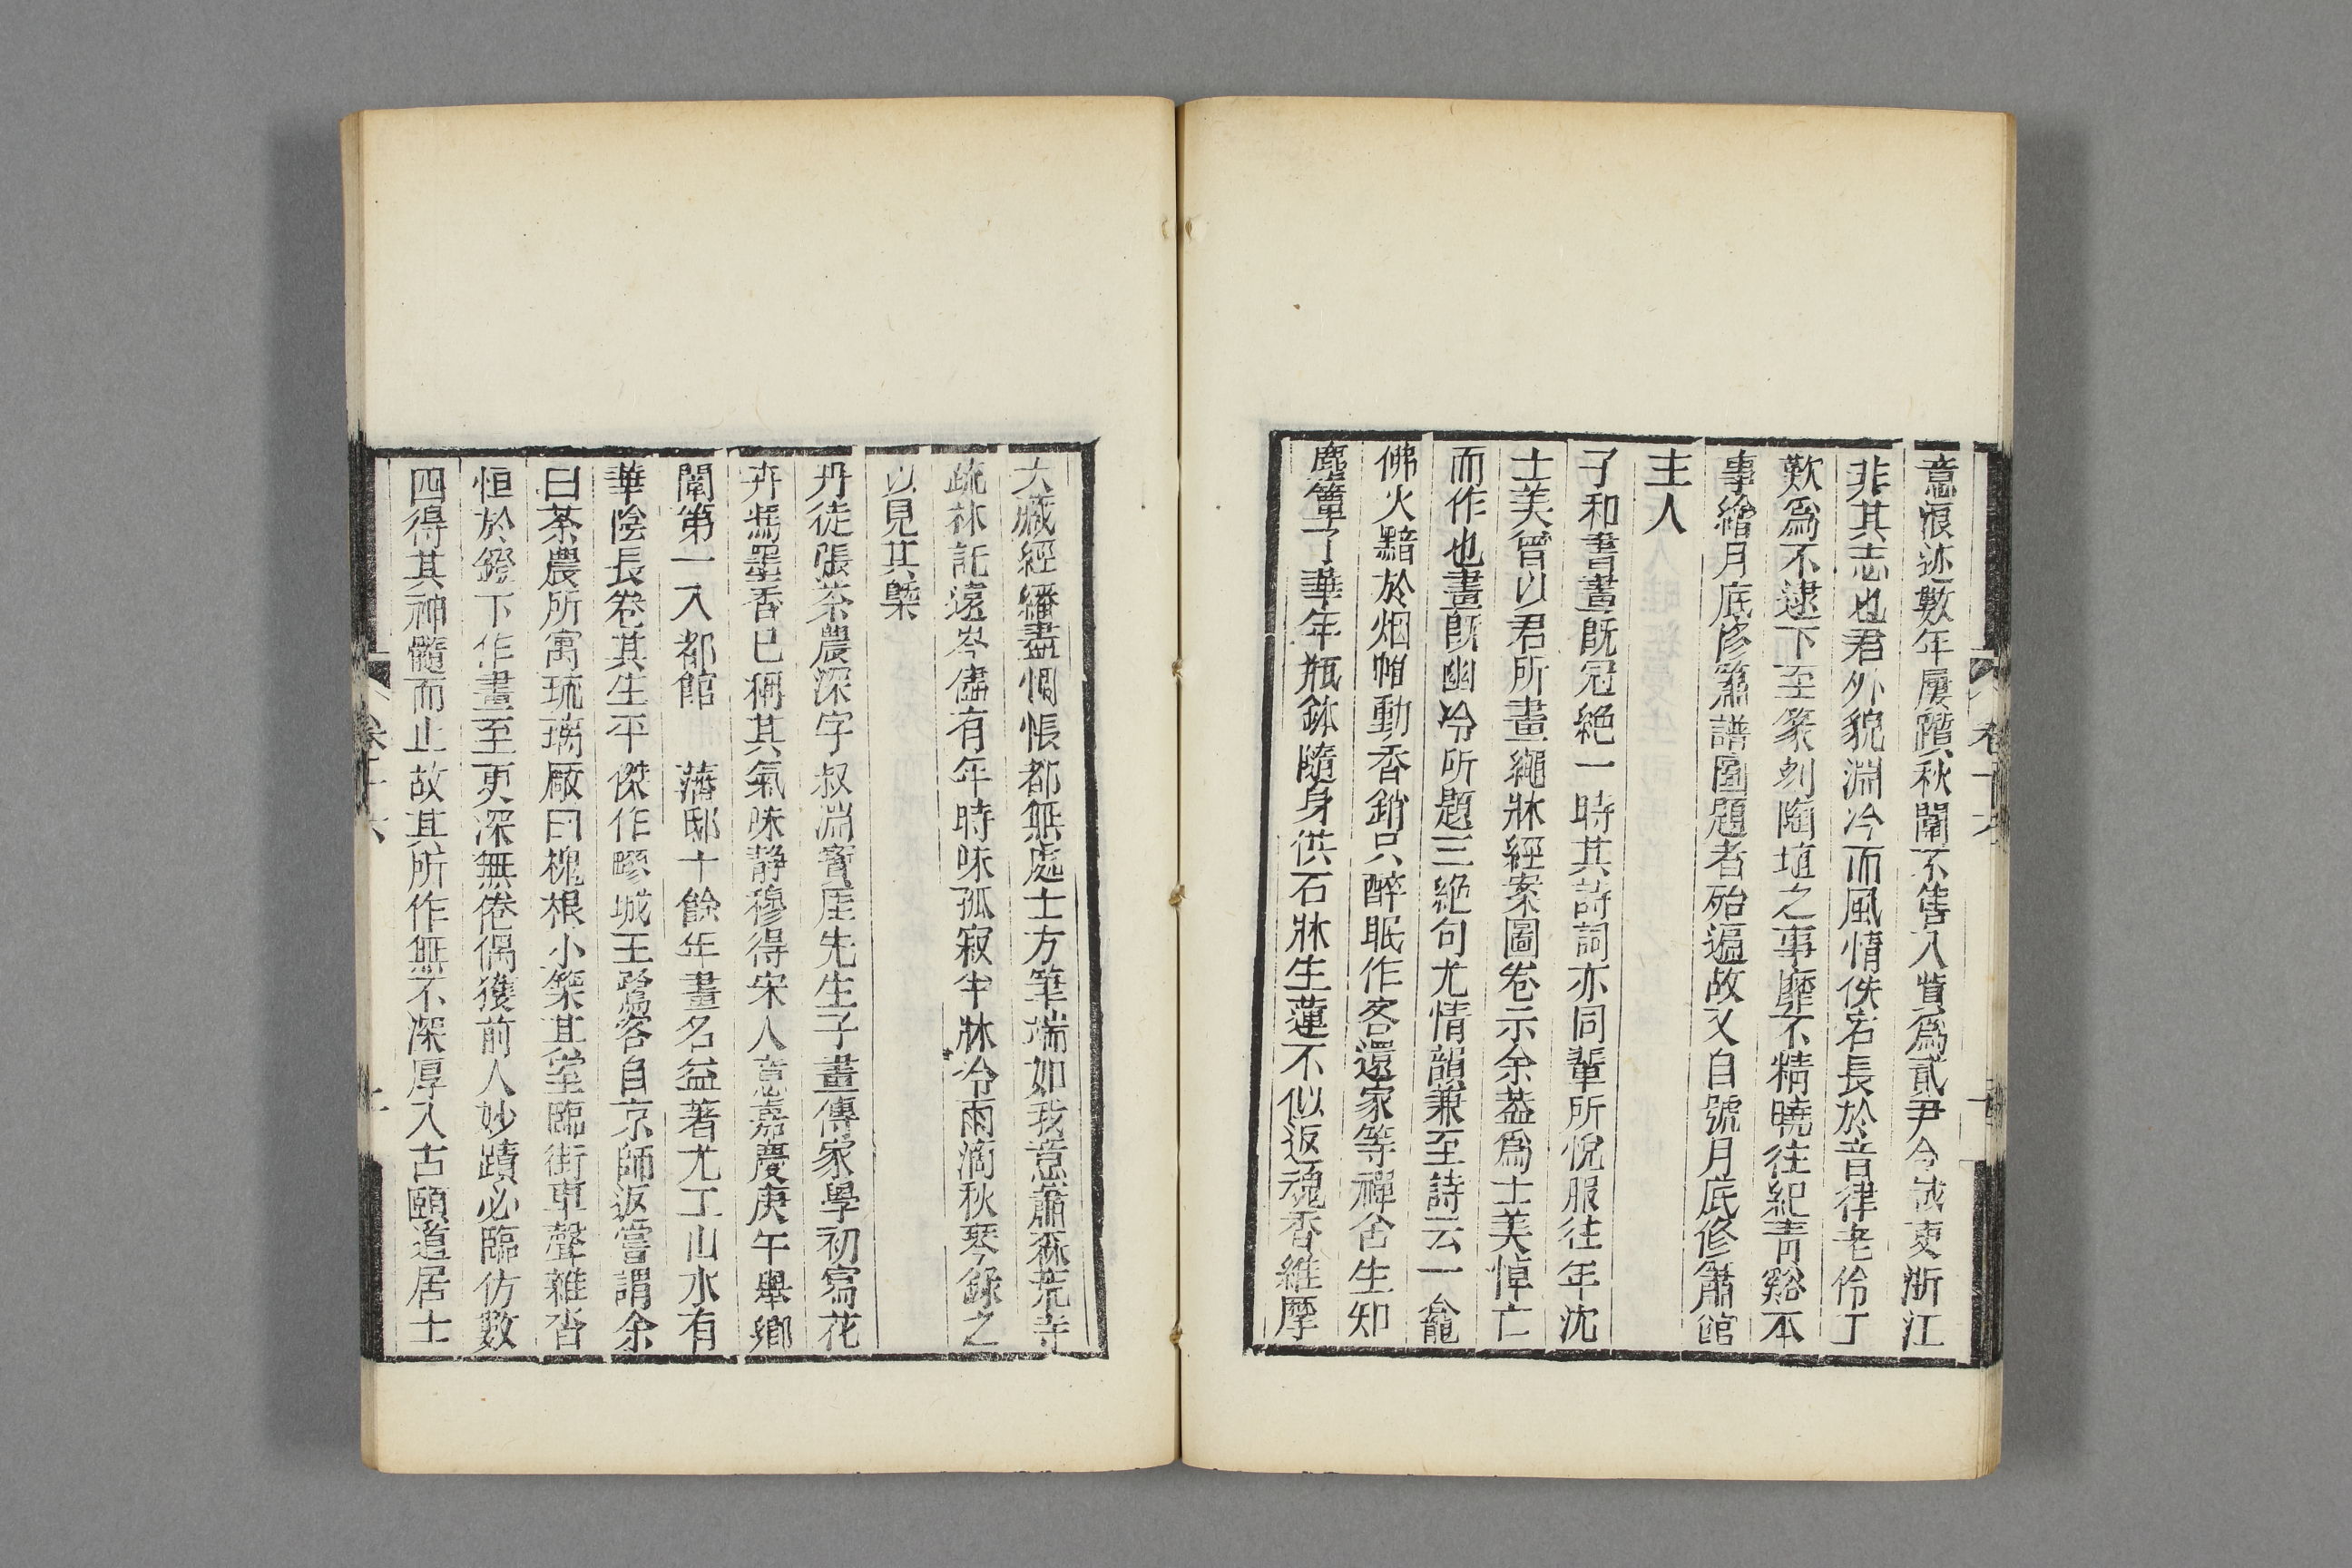 意浪迹數年屢躓秋闈不售入貲爲貳尹令試吏浙江
非其志也君外貌淵冷而風情佚宕長於音律老伶丁
歎爲不逮下至篆刻陶埴之事靡不精曉往紀青谿本
事繪月底修簫譜圖題者殆遍故又自號月底修簫館
主人
子和書畫旣冠絶一時其詩詞亦同輩所悅服往年沈
士美曾以君所畫繩牀經案圖卷示余葢爲士美悼亡
而作也畫旣幽冷所題三絶句尤情韻兼至詩云一龕
佛火黯於烟帽動香銷只醉眠作客還家等禪舍生知
塵簟了華年瓶鉢隨身供石牀生蓮不似返魂香維摩
大藏經繙盡惆悵都無處士方筆端如我意蕭森荒寺
疏林託遠岑儘有年時味孤寂半牀冷雨滴秋琴錄之
以見其槩
丹徒張茶農深字叔淵寶厓先生子畫傳家學初寫花
卉爲墨香巳稱其氣味靜穆得宋人意嘉慶庚午舉鄉
闈第一入都館　藩邸十餘年畫名益著尤工山水有
華陰長卷其生平傑作郰城王鷺客自京師返嘗謂余
曰茶農所寓琉璃厰曰槐根小築其堂臨街車聲雜沓
恒於鐙下作畫至更深無倦偶獲前人妙蹟必臨仿數
四得其神髓而止故其所作無不深厚入古頤道居士